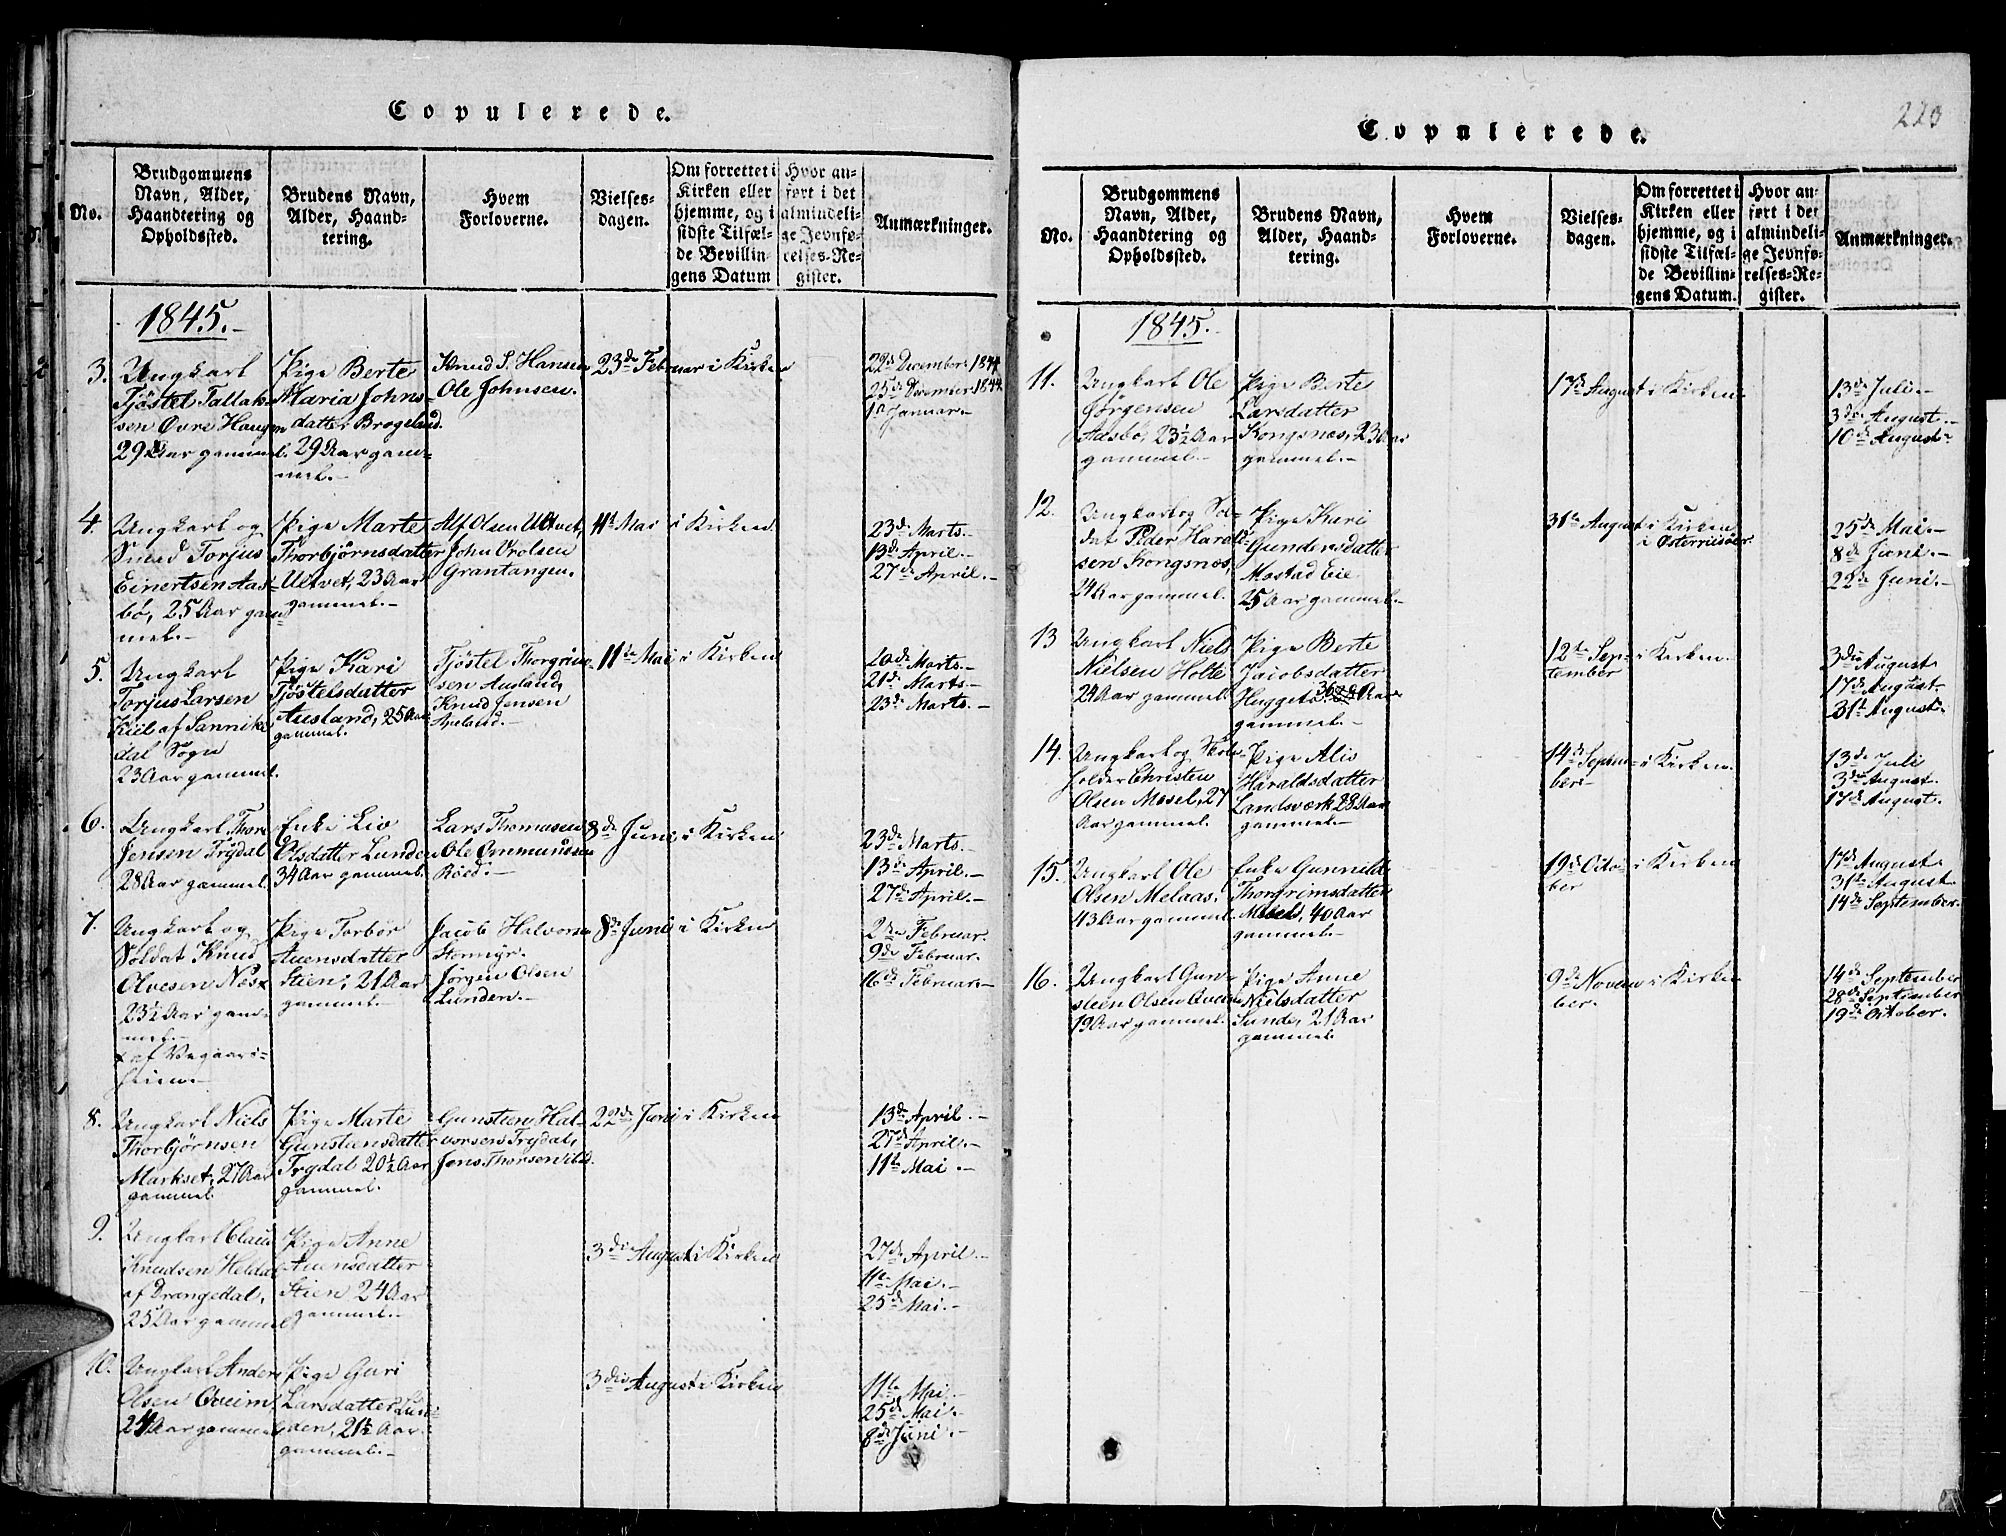 Copulerede.
No.
Brudgommens
Navn, Alder,
Haandtering og
Opholdssted.
Brudens Navn,
Alder, Haand-
tering.
Hvem
Forloverne.
Vielses-
dagen.
Om forrettet i
Kirken eller
hjemme, og i
sidste Tilfæl-
de Bevillin-
gens Datum
Hvor an-
ført i det
almindeli-
ge Jevnfø-
relses-Re-
gister.
Anmærkninger.
1845.-
3.
Ungkarl
Tjöstel Tallak-
sen Øvre Haugen
29 Aar gammel
Pige Berte
Maria Johns-
datter Brogeland
29 Aar gam-
mel.-
Knud S. Hansen
Ole Johnsen.
23de Februar
i Kirken
22de December 1844
25de December 1844.
1ste Januar.-
4.
Ungkarl og
Smed Torjus
Einertsen Aas-
bö, 25 Aar gam-
mel.-
Pige Marte
Thorbjörnsdatter
Ultvet, 23 Aar
gammel.-
Alf Olsen Ultvet,
John Vrolsen
Grantangen.
11te Mai
i Kirken
23de Marts.-
13de April.-
27de April.-
5.
Ungkarl
Torjus Larsen
Kiil af Sannike-
dal Sogn
23 Aar gammel.
Pige Kari
Tjöstelsdatter
Ausland, 25 Aar
gammel.
Tjöstel Thorgrim-
sen Ausland,
Knud Jensen
11te Mai
i Kirken
Marts.-
21de Marts.-
23de Marts.-
6.
Ungkarl Thore
Jensen Trydal
28 Aar gammel.
Enke Liv
Olsdatter Lunden
34 Aar gammel.
Lars Thomasen
Ole Ommundsen
Röed.-
8de Juni
i Kirken
23de Marts.-
13de April.-
27de April.-
7.
Ungkarl og
Soldat Knud
Olvesen Næs x
23½ Aar gam-
mel.-
x af Vegaars-
heien.-
Pige Torbör
Auensdatter
Stien, 21 Aar
gammel.-
Jacob Halvorsen
Stormyr.
Jörgen Olsen
Lunden.-
8de Juni
i Kirken
2den Februar.
9de Februar.
16de Februar.-
8.
Ungkarl Niels
Thorbjørnsen
Markset, 27 Aar
gammel
Pige Marte
Gunstensdatter
Trydal 20½ Aar
gammel.
Gunstien Hal-
vorsen Trydal,
Jens Thorsen
22de Juni
i Kirken
13de April.-
27de April.-
11te Mai.-
9.
Ungkarl Claus
Knudsen Heldal
af Drangedal,
25 Aar gammel
Pige Anne
Auensdatter
Stien 24 Aar
gammel.-
3die August
i Kirken
27de April.-
11te Mai.-
25de Mai.-
10.
Ungkarl Anders
Olsen Qveim,
24 Aar gammel
Pige Guri
Larsdatter Lun-
den, 21½ Aar
gammel.-
3die August
i Kirken
11te Mai.-
25de Mai.-
8de Juni.-
Copulerede.
No.
Brudgommens
Navn, Alder,
Haandtering og
Opholdssted.
Brudens Navn,
Alder, Haand-
tering.
Hvem
Forloverne.
Vielses-
dagen.
Om forrettet i
Kirken eller
hjemme, og i
sidste Tilfæl-
de Bevillin-
gens Datum.
Hvor an-
ført i det
almindeli-
ge Jevnfø-
relses-Re-
gister.
Anmærkninger.
1845.-
11.
Ungkarl Ole
Jörgensen
Aasbö, 23½ Aar
gammel.-
Pige Berte
Larsdatter
Kongsnæs, 23 Aar
gammel.-
17de August
i Kirken
13de Juli.-
3die August.-
10de August.-
12.
Ungkarl og Sol-
dat Peder Harald-
sen Kongsnæs,
24 Aar gammel.
Pige Kari
Gundersdatter
Mostad Eie
25 Aar gammel.-
31te August
i Kirken
i Østerriisöer
25de Mai.-
8de Juni.-
22de Juni.-
13
Ungkarl Niels
Nielsen Holte
24 Aar gammel
Pige Berte
Jacobsdatter
Aar
gammel.-
12te Sep-
tember
i Kirken.
3die August
17de August.
31te August.
14.
Ungkarl og Skole-
holder Christen
Olsen Mosel, 27
Aar gammel.
Pige Alis
Haraldsdatter
Landsverk 28 Aar
gammel.-
14de Septem-
ber.
i Kirken.
13de Juli
3die August.
17de August.
15.
Ungkarl Ole
Olsen Melaas,
43 Aar gammel
Enke Gunnild
Thorgrimsdatter
Mosel, 40 Aar
gammel.-
19de Octo-
ber
i Kirken
17de August.
31te August.
14de September.
16.
Ungkarl Gun-
steen Olsen Qveim
19 Aar gammel.
Pige Anne
Nielsdatter
Sunde, 21 Aar
gammel.
9de Novem-
ber.
i Kirken
14de September
28de September
19de October.